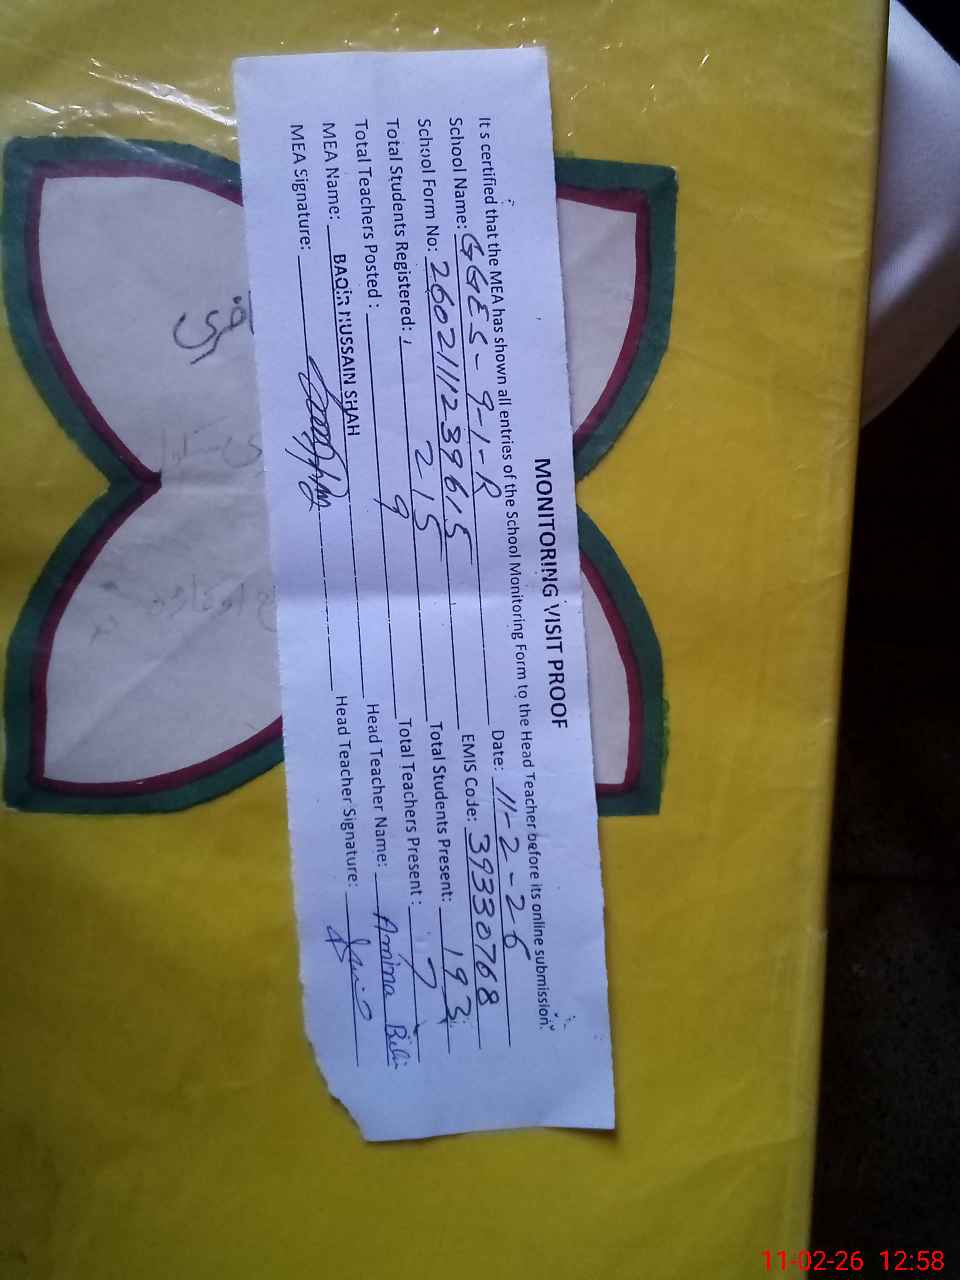 MONITORING VISIT PROOF
It s certified that the MEA has shown all entries of the School Monitoring Form to the Head Teacher before its online submission.
School Name: GGES-9-1-R Date: 11-2-26
School Form No: 2602111239615 EMIS Code: 39330768
Total Students Registered: 215 Total Students Present: 193
Total Teachers Posted : 9 Total Teachers Present : 7
MEA Name: BAQIR HUSSAIN SHAH Head Teacher Name: Amima Bibi
MEA Signature: Head Teacher Signature:
11-02-26 12:58